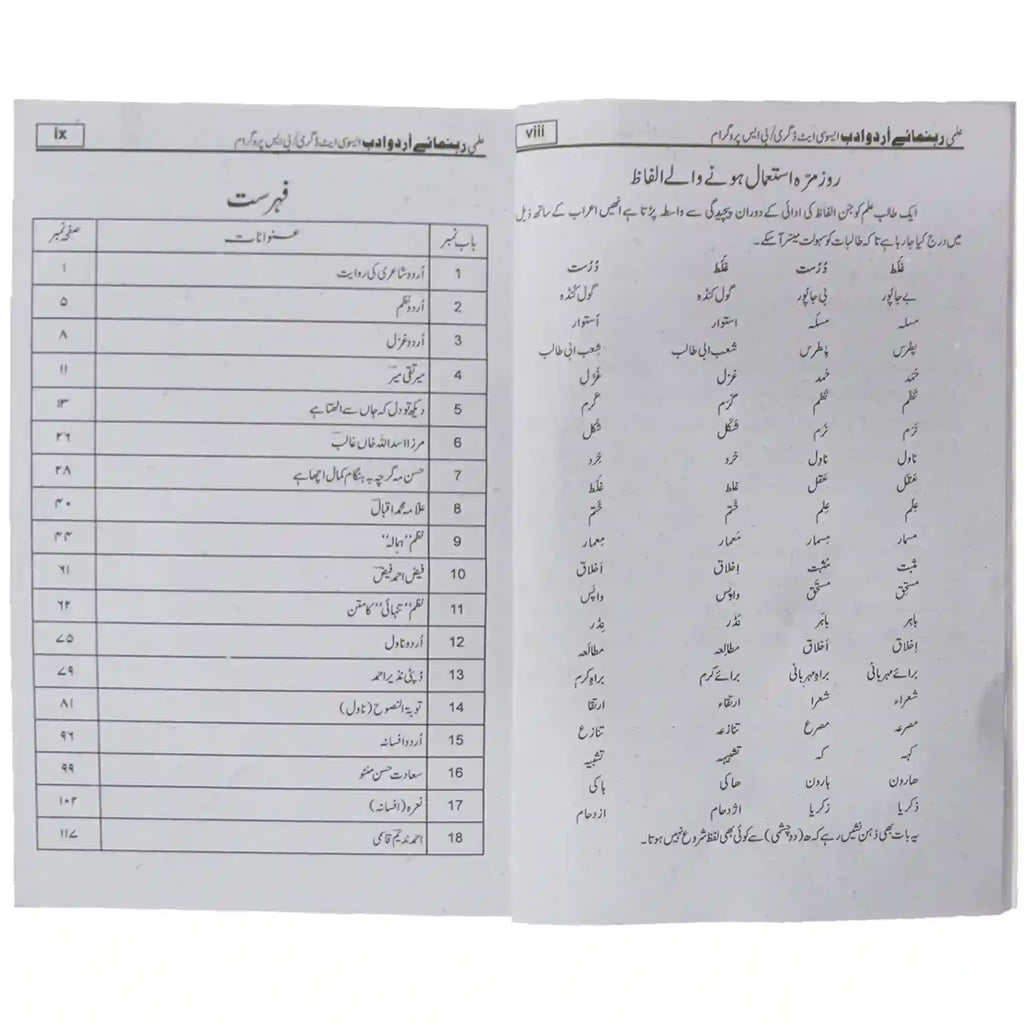 viii
علمی رہنمائے اُردو ادب ایسوسی ایٹ ڈگری/بی ایس پروگرام
روزمرّہ استعمال ہونے والے الفاظ
ایک طالب علم کو جن الفاظ کی ادائی کے دوران پیچیدگی سے واسطہ پڑتا ہے انھیں اعراب کے ساتھ ذیل
میں درج کیا جا رہا ہے تاکہ طالبات کو سہولت میسر آ سکے۔
غَلَط دُرُست غُلَط دُرُست
بے جاپور بی جاپور گول کنڈہ گول کُنڈہ
مسلہ مسئلہ استوار اُستوار
پطرس پطرس شعب ابی طالب شِعب ابی طالب
حَمَد حَمد غزل غَزَل
نَظَم نَظْم گَرَم گَرْم
نَرَم نَرْم شَکَل شَکْل
ناول ناوِل خرد خِرَد
عَقَل عَقْل غلط غَلَط
عِلَم عِلْم خَتَم خَتْم
مسمار مِسمار مَعمار مِعمار
مثبت مُثبت اِخلاق اَخلاق
مستحِق مُستَحَق واپَس واپِس
باہر باہَر نَذَر نَذْر
اِخلاق اَخلاق مطالِعہ مطالَعہ
برائے مہربانی براہِ مہربانی برائے کرم براہِ کرم
شعراء شعرا ارتقاء ارتقا
مصرعہ مصرع تنازعہ تنازع
کہہ کہ تشبیہہ تشبیہ
ھارون ہارون ھاکی ہاکی
ذکریا زکریا اژدحام ازدحام
یہ بات بھی ذہن نشیں رہے کہ ھ (دو چشمی) سے کوئی بھی لفظ شروع نہیں ہوتا۔
ix
علمی رہنمائے اُردو ادب ایسوسی ایٹ ڈگری/بی ایس پروگرام
فہرست
باب نمبر عنوانات صفحہ نمبر
1 اُردو شاعری کی روایت ۱
2 اُردو نظم ۵
3 اُردو غزل ۸
4 میر تقی میرؔ ۱۱
5 دیکھ تو دل کہ جاں سے اٹھتا ہے ۱۳
6 مرزا اسد اللہ خاں غالبؔ ۲۶
7 حسن مہ گرچہ بہ ہنگام کمال اچھا ہے ۲۸
8 علامہ محمد اقبالؔ ۴۰
9 نظم ”ہمالہ“ ۴۴
10 فیض احمد فیضؔ ۶۱
11 نظم ”تنہائی“ کا متن ۶۴
12 اُردو ناول ۷۵
13 ڈپٹی نذیر احمد ۷۹
14 توبۃ النصوح (ناول) ۸۱
15 اُردو افسانہ ۹۶
16 سعادت حسن منٹو ۹۹
17 نعرہ (افسانہ) ۱۰۲
18 احمد ندیم قاسمی ۱۱۷